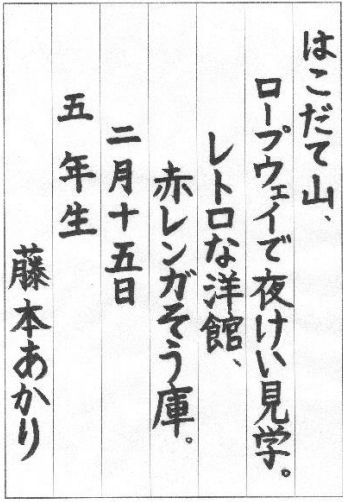 はこだて山、
ロープウェイで夜けい見学。
レトロな洋館、
赤レンガそう庫。
二月十五日
五年生
藤本あかり